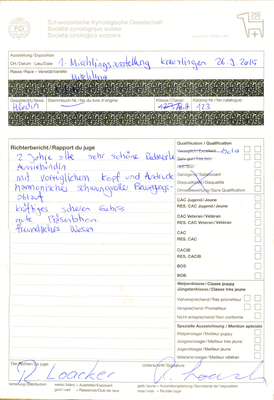 Schweizerische Kynologische Gesellschaft
Société cynologique suisse
Società cinologica svizzera
Ausstellung/Exposition
Ort/Datum Lieu/Date 1. Mischlingsausstellung Kreuzlingen 26.9.2015
Rasse/Race - Varietät/Variété
Mischling
Geschlecht/Sexe
Klasse/Classe
Katalog-Nr/No catalogue
Hündin
123
Richterbericht/Rapport du juge
2 Jahre alte sehr schöne
mit vorzüglichem Kopf und Ausdruck
harmonischer schwungvoller Bewegungs-
ablauf
kräftiges Scheren Gebiss
gute Präsentation
freundliches Wesen
Qualifikation / Qualification
Vorzüglich/Excellent
Sehr gut/Très bon
Gut/Bon
Genügend/Satisfaisant
Disqualifiziert/Disqualifié
Ohne Bewertung/Sans Qualification
CAC Jugend/Jeune
RES. CAC Jugend/Jeune
CAC Veteran/Vétéran
RES. CAC Veteran/Vétéran
CAC
RES. CAC
CACIB
RES. CACIB
BOS
BOB
Welpenklasse/Classe puppy
Jüngstenklasse/Classe très jeune
Vielversprechend/Très prometteur
Versprechend/Prometteur
Nicht entsprechend/Non conforme
Spezielle Auszeichnung/Mention spéciale
Welpensieger/Meilleur puppy
Jüngstensieger/Meilleur très jeune
Jugendsieger/Meilleur jeune
Veteranensieger/Meilleur vétéran
Der Richter/Le juge
Unterschrift/Signature
R. Loacker